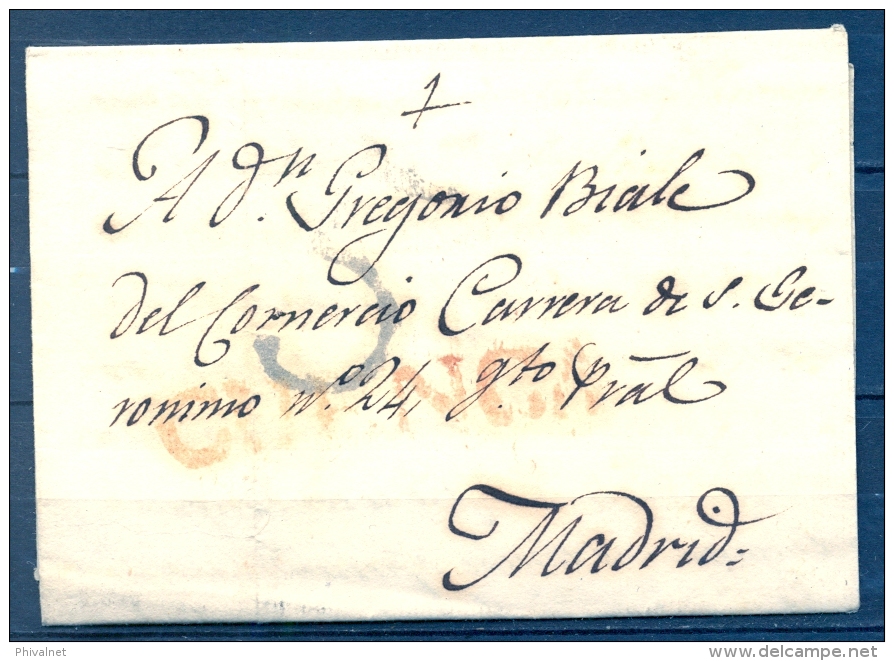 A dⁿ. Gregorio Biale
del Comercio Carrera de S. Ge-
ronimo nº. 24, qto Prãl
Madrid=
Phivalnet
delcampe.net